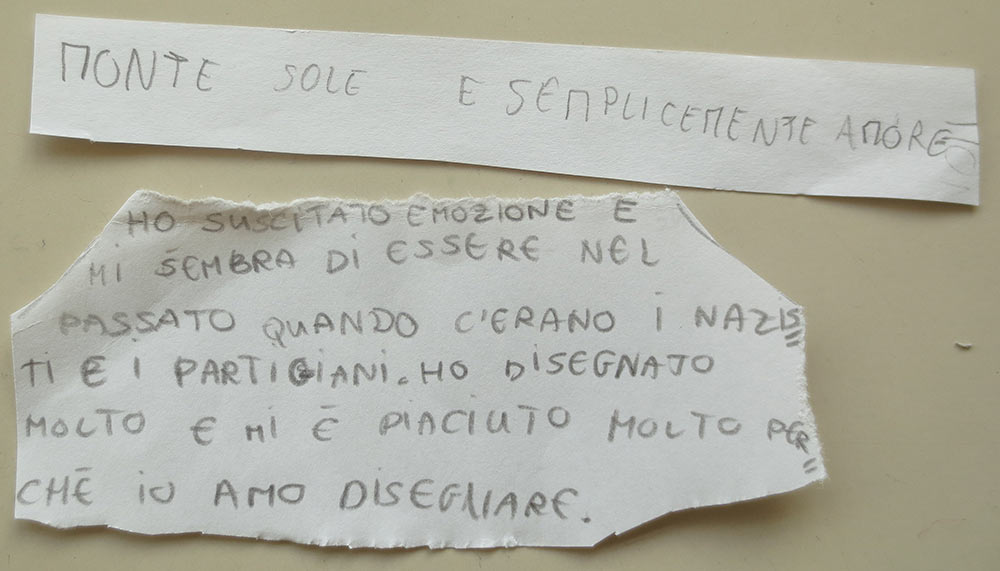 MONTE SOLE E SEMPLICEMENTE AMORE
HO SUSCITATO EMOZIONE E
MI SEMBRA DI ESSERE NEL
PASSATO QUANDO C'ERANO I NAZIS
TI E I PARTIGIANI. HO DISEGNATO
MOLTO E MI È PIACIUTO MOLTO PER
CHÉ IO AMO DISEGNIARE.